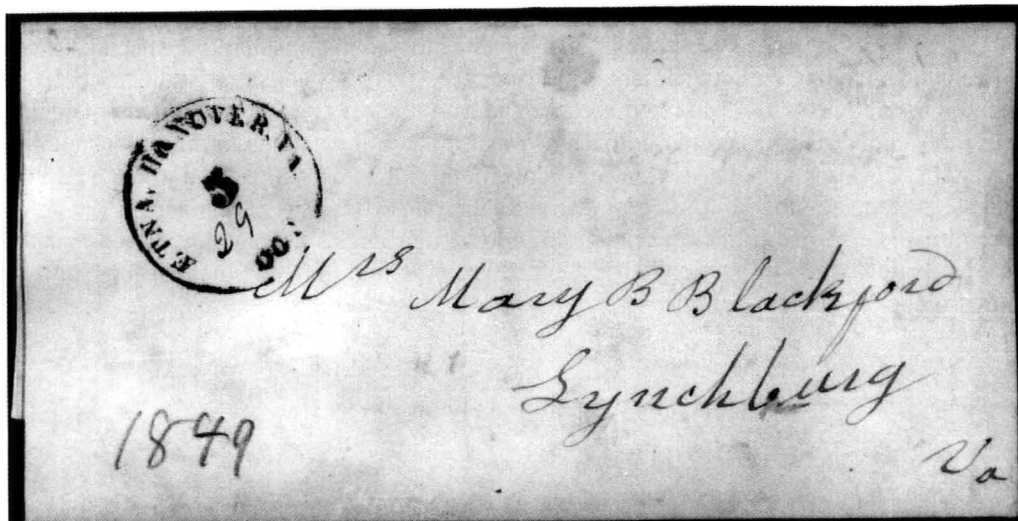 ETNA, HANOVER, VA.
5
Mrs Mary B Blackford
Lynchburg
Va
1849